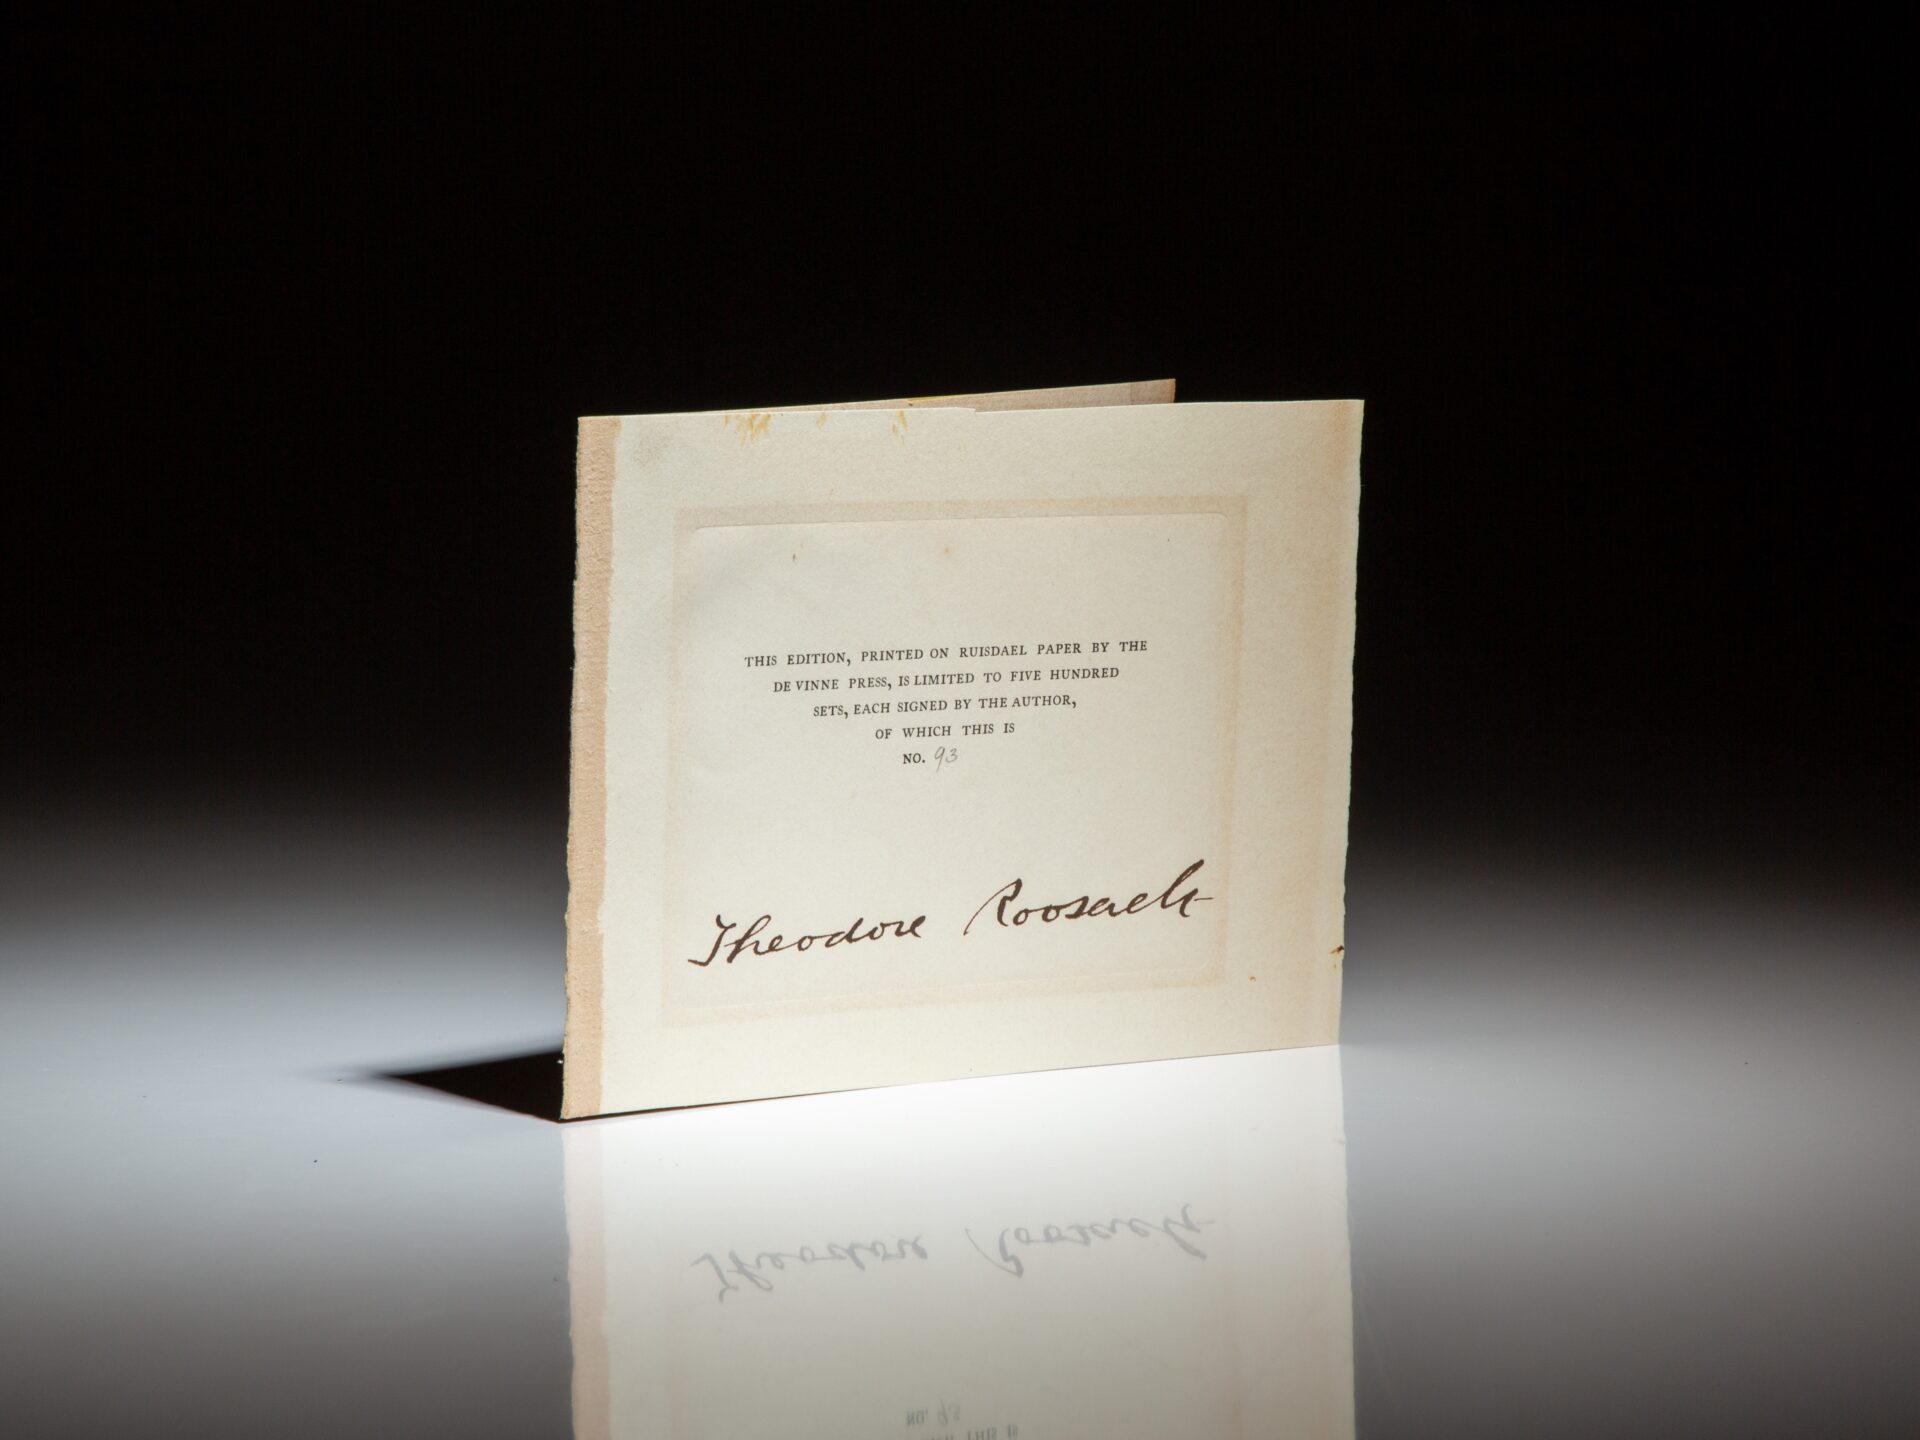 THIS EDITION, PRINTED ON RUISDAEL PAPER BY THE
DE VINNE PRESS, IS LIMITED TO FIVE HUNDRED
SETS, EACH SIGNED BY THE AUTHOR,
OF WHICH THIS IS
NO. 93
Theodore Roosevelt